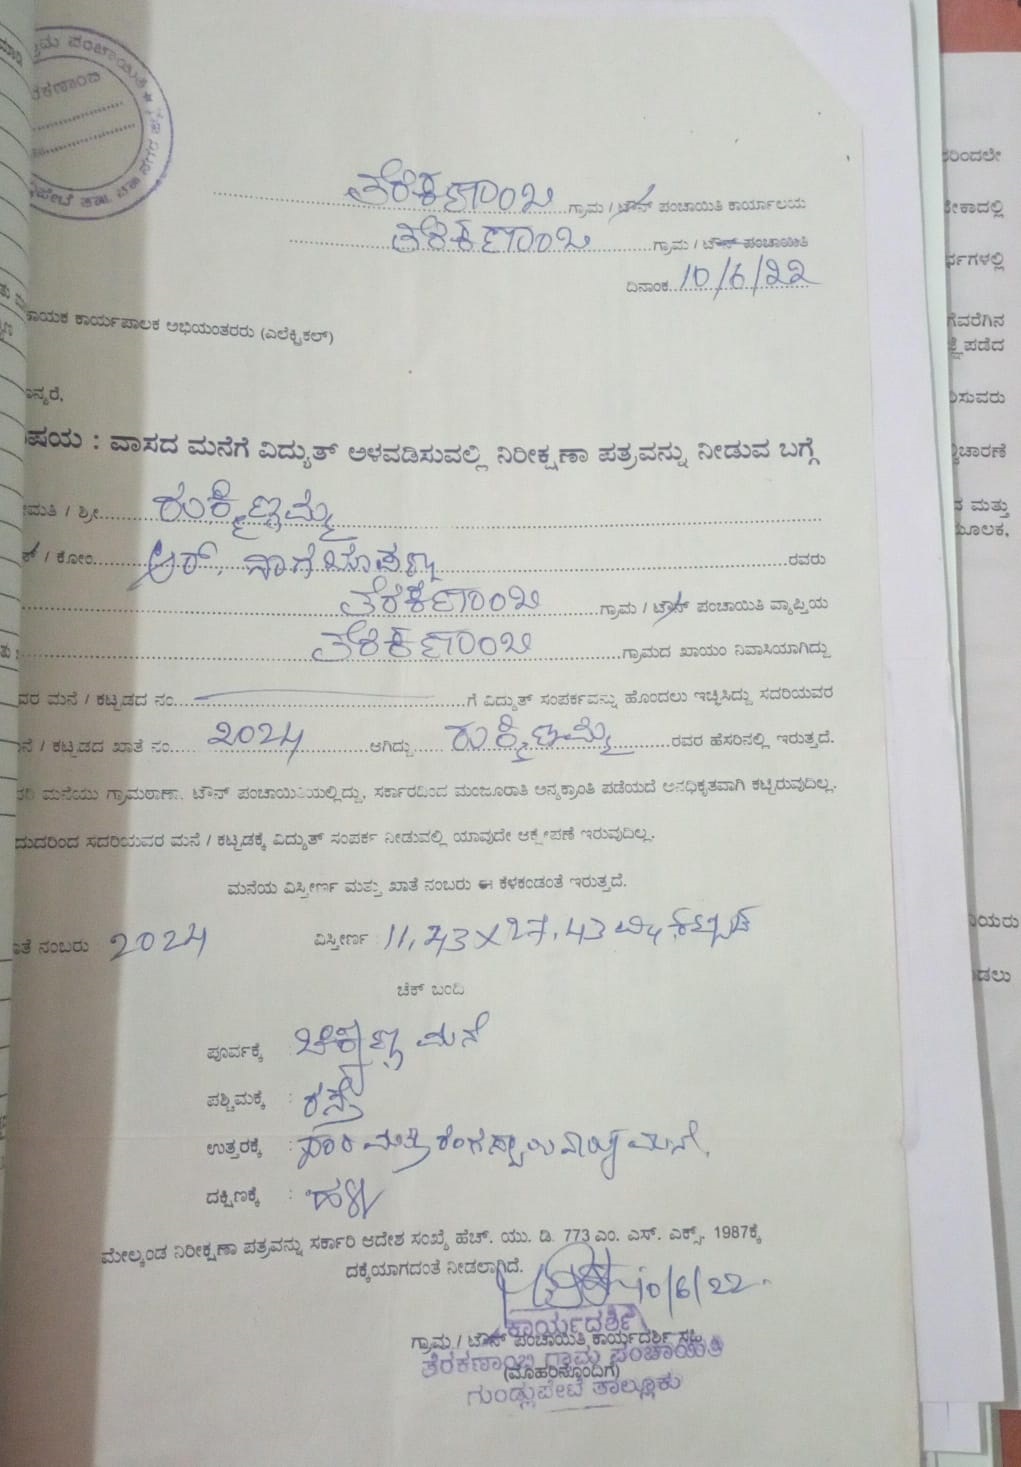 ಪಂಚಾಯಿತಿ ★
ತೆರಕಣಾಂಬಿ ಗ್ರಾಮ / ಟೌನ್ ಪಂಚಾಯಿತಿ ಕಾರ್ಯಾಲಯ
ತೆರಕಣಾಂಬಿ ಗ್ರಾಮ / ಟೌನ್ ಪಂಚಾಯಿತಿ
ದಿನಾಂಕ 10/6/22
ಾಯಕ ಕಾರ್ಯಪಾಲಕ ಅಭಿಯಂತರರು (ಎಲೆಕ್ಟ್ರಿಕಲ್)
ನ್ಯರೆ,
ಷಯ : ವಾಸದ ಮನೆಗೆ ವಿದ್ಯುತ್ ಅಳವಡಿಸುವಲ್ಲಿ ನಿರೀಕ್ಷಣಾ ಪತ್ರವನ್ನು ನೀಡುವ ಬಗ್ಗೆ
ಮತಿ / ಶ್ರೀ ರುಕ್ಮಿಣಮ್ಮ
/ ಕೋಂ ಆರ್. ನಾಗಭೂಷಣ ರವರು
ತೆರಕಣಾಂಬಿ ಗ್ರಾಮ / ಟೌನ್ ಪಂಚಾಯಿತಿ ವ್ಯಾಪ್ತಿಯ
ತೆರಕಣಾಂಬಿ ಗ್ರಾಮದ ಖಾಯಂ ನಿವಾಸಿಯಾಗಿದ್ದು
ವರ ಮನೆ / ಕಟ್ಟಡದ ನಂ ಗೆ ವಿದ್ಯುತ್ ಸಂಪರ್ಕವನ್ನು ಹೊಂದಲು ಇಚ್ಚಿಸಿದ್ದು ಸದರಿಯವರ
ನೆ / ಕಟ್ಟಡದ ಖಾತೆ ನಂ 2024 ಆಗಿದ್ದು ರುಕ್ಮಿಣಮ್ಮ ರವರ ಹೆಸರಿನಲ್ಲಿ ಇರುತ್ತದೆ.
ದರಿ ಮನೆಯು ಗ್ರಾಮಠಾಣಾ, ಟೌನ್ ಪಂಚಾಯಿತಿಯಲ್ಲಿದ್ದು, ಸರ್ಕಾರದಿಂದ ಮಂಜೂರಾತಿ ಅನ್ಯಕ್ರಾಂತಿ ಪಡೆಯದೆ ಅನಧಿಕೃತವಾಗಿ ಕಟ್ಟಿರುವುದಿಲ್ಲ.
ದುದರಿಂದ ಸದರಿಯವರ ಮನೆ / ಕಟ್ಟಡಕ್ಕೆ ವಿದ್ಯುತ್ ಸಂಪರ್ಕ ನೀಡುವಲ್ಲಿ ಯಾವುದೇ ಆಕ್ಷೇಪಣೆ ಇರುವುದಿಲ್ಲ.
ಮನೆಯ ವಿಸ್ತೀರ್ಣ ಮತ್ತು ಖಾತೆ ನಂಬರು ಈ ಕೆಳಕಂಡಂತೆ ಇರುತ್ತದೆ.
ತೆ ನಂಬರು 2024 ವಿಸ್ತೀರ್ಣ : 11.43 X 27.43
ಚೆಕ್ ಬಂದಿ
ಪೂರ್ವಕ್ಕೆ : ಚಿಕ್ಕಣ್ಣ ಮನೆ
ಪಶ್ಚಿಮಕ್ಕೆ : ರಸ್ತೆ
ಉತ್ತರಕ್ಕೆ : ದಾರಿ ಮತ್ತು ರಂಗಸ್ವಾಮಿನಾಯ್ಕ ಮನೆ.
ದಕ್ಷಿಣಕ್ಕೆ : ಹಳ್ಳ
ಮೇಲ್ಕಂಡ ನಿರೀಕ್ಷಣಾ ಪತ್ರವನ್ನು ಸರ್ಕಾರಿ ಆದೇಶ ಸಂಖ್ಯೆ ಹೆಚ್. ಯು. ಡಿ. 773 ಎಂ. ಎಸ್. ಎಕ್ಸ್. 1987ಕ್ಕೆ
ದಕ್ಕೆಯಾಗದಂತೆ ನೀಡಲಾಗಿದೆ.
10/6/22
ಕಾರ್ಯದರ್ಶಿ
ಗ್ರಾಮ / ಟೌನ್ ಪಂಚಾಯಿತಿ ಕಾರ್ಯದರ್ಶಿ ಸಹಿ
ತೆರಕಣಾಂಬಿ ಗ್ರಾಮ ಪಂಚಾಯಿತಿ
(ಮೊಹರಿನೊಂದಿಗೆ)
ಗುಂಡ್ಲುಪೇಟೆ ತಾಲ್ಲೂಕು